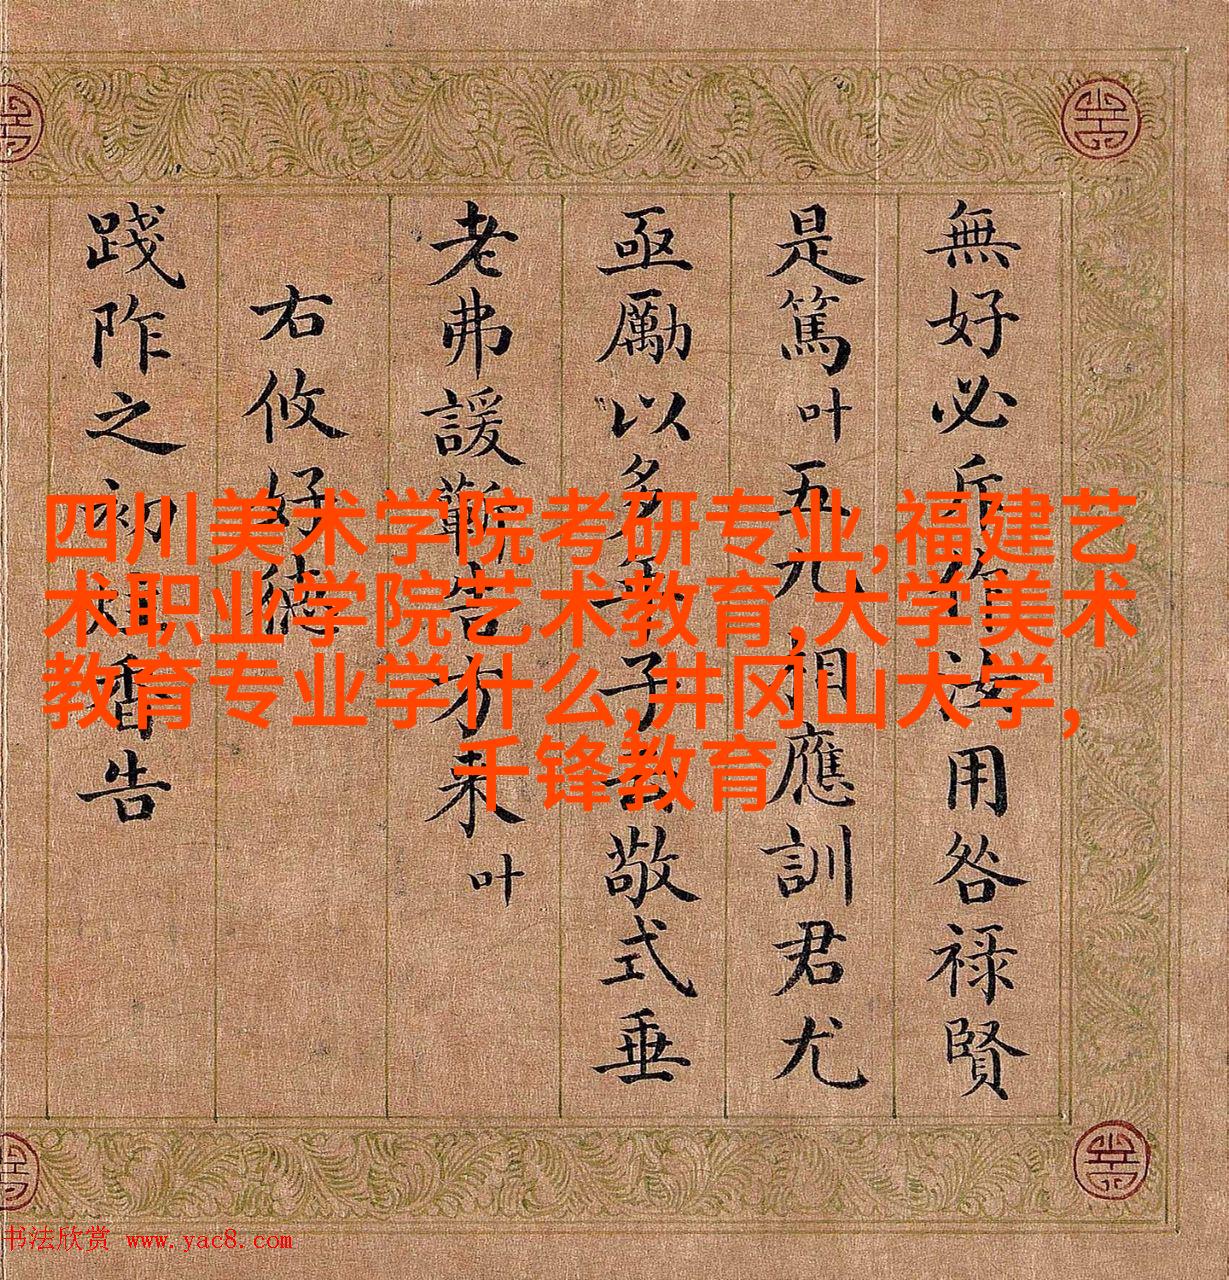 無好必作汝用咎禄賢
是篤叶五九相應訓君尤
亟勵以多子敬式垂
老弗諼告方来叶
右攸好德
踐阼之初香告
四川美术学院考研专业,福建艺
术职业学院艺术教育,大学美术
教育专业学什么,井冈山大学,
千锋教育
书法欣赏 www.yac8.com